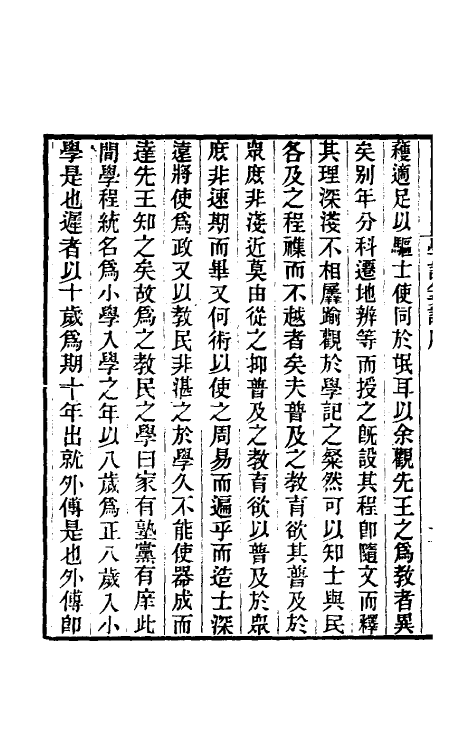 穫適足以驅士使同於氓耳以余觀先王之爲教者異
矣别年分科遷地辨等而授之旣設其程卽隨文而釋
其理深淺不相羼踰觀於學記之粲然可以知士與民
各及之程襍而不越者矣夫普及之教育欲其普及於
衆庶非淺近莫由從之抑普及之教育欲以普及於眾
庶非速期而畢又何術以使之周易而遍乎而造士深
遠將使爲政又以教民非湛之於學久不能使器成而
達先王知之矣故爲之教民之學曰家有塾黨有庠此
間學程統名爲小學入學之年以八歲爲正八歲入小
學是也遲者以十歲爲期十年出就外傅是也外傅卽